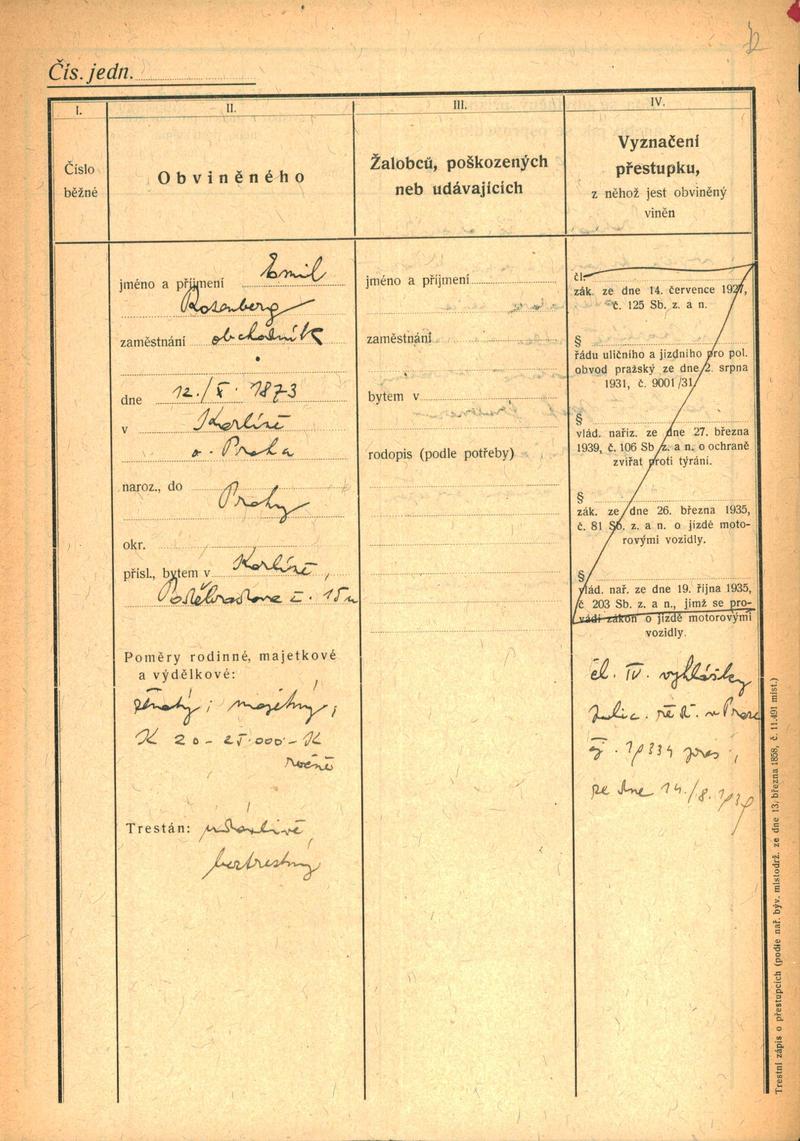 Čís. jedn.
I.
Číslo
běžné
II.
Obviněného
III.
Žalobců, poškozených
neb udávajících
IV.
Vyznačení
přestupku,
z něhož jest obviněný
viněn
jméno a příjmení Emil
Rosenberg
zaměstnání obchodník
dne 12./X. 1873
v Karlíně
o. Praha
naroz., do
Prahy
okr.
přísl., bytem v Karlíně,
Poděbradova č. 15
Poměry rodinné, majetkové
a výdělkové:
ženatý; majetný;
K 20-25.000-K
ročně
Trestán: udanlivě
beztrestný
jméno a příjmení
zaměstnání
bytem v
rodopis (podle potřeby)
čl.
zák. ze dne 14. července 1927,
č. 125 Sb. z. a n.
§
řádu uličního a jízdního pro pol.
obvod pražský ze dne 2. srpna
1931, č. 9001/31.
§
vlád. naříz. ze dne 27. března
1939, č. 106 Sb. z. a n. o ochraně
zvířat proti týrání.
§
zák. ze dne 26. března 1935,
č. 81 Sb. z. a n. o jízdě moto-
rovými vozidly.
§
vlád. nař. ze dne 19. října 1935,
č. 203 Sb. z. a n., jímž se pro-
vádí zákon o jízdě motorovými
vozidly.
čl. IV. vyhlášky
polic. řed. v Praze
ze dne 14./8. 1939
Trestní zápis o přestupcích (podle nař. býv. místodrž. ze dne 13. března 1858, č. 11.491 míst.)